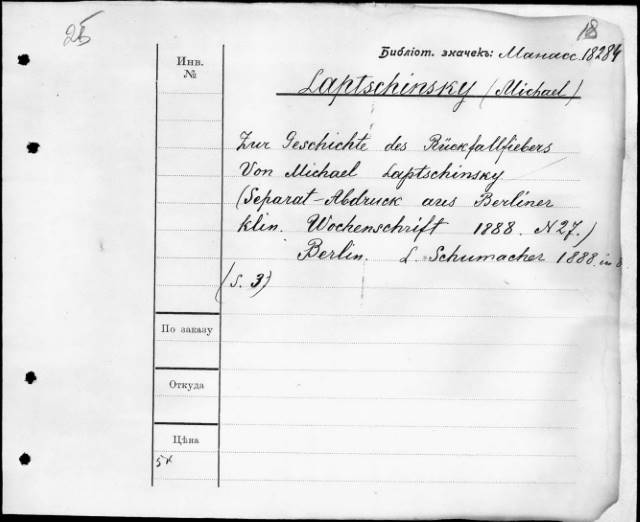 25
18
Библіот. значекъ: Манасс. 18284
Инв.
№
Laptschinsky (Michael)
Zur Geschichte des Rückfallfiebers
Von Michael Laptschinsky
(Separat-Abdruck aus Berliner
klin. Wochenschrift 1888. N27.)
Berlin. L. Schumacher 1888. in 8.
(S. 3)
По заказу
Откуда
Цѣна
5к